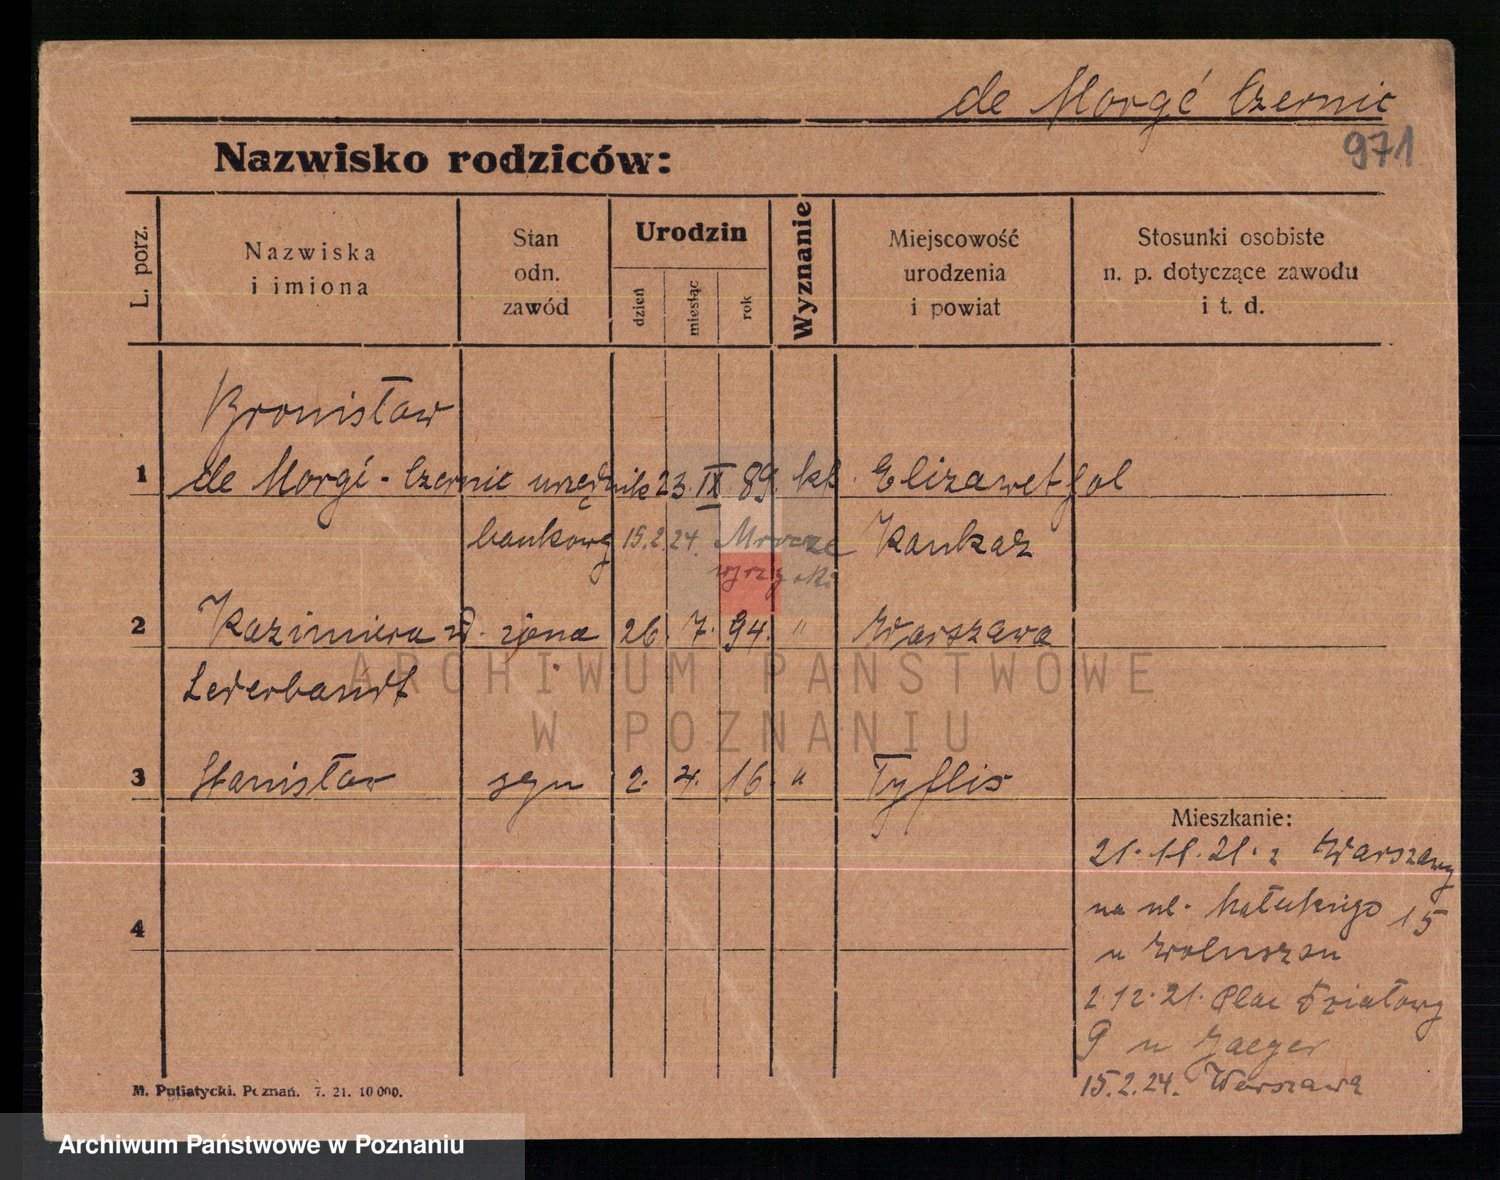 de Morgé Czernic
971
Nazwisko rodziców:
L. porz.
Nazwiska
i imiona
Stan
odn.
zawód
Urodzin
dzień
miesiąc
rok
Wyznanie
Miejscowość
urodzenia
i powiat
Stosunki osobiste
n. p. dotyczące zawodu
i t. d.
Bronisław
1 de Morgé - Czernic urzędnik 23. IX. 89. kt. Elizawetpol
bankowy 15.2.24. Mrocze Kaukaz
wyrzyski
2 Kazimiera z d. żona 26. 7. 94. " Warszawa
Lederbandt
ARCHIWUM PAŃSTWOWE
W POZNANIU
3 Stanisław syn 2. 4. 16. " Tyflis
Mieszkanie:
21. 11. 21. z Warszawy
na ul. 15
4
u Woluszon
2. 12. 21. Plac Działowy
9 u Jaeger
15.2.24. Warszawa
M. Putiatycki. Poznań. 7. 21. 10 000.
Archiwum Państwowe w Poznaniu